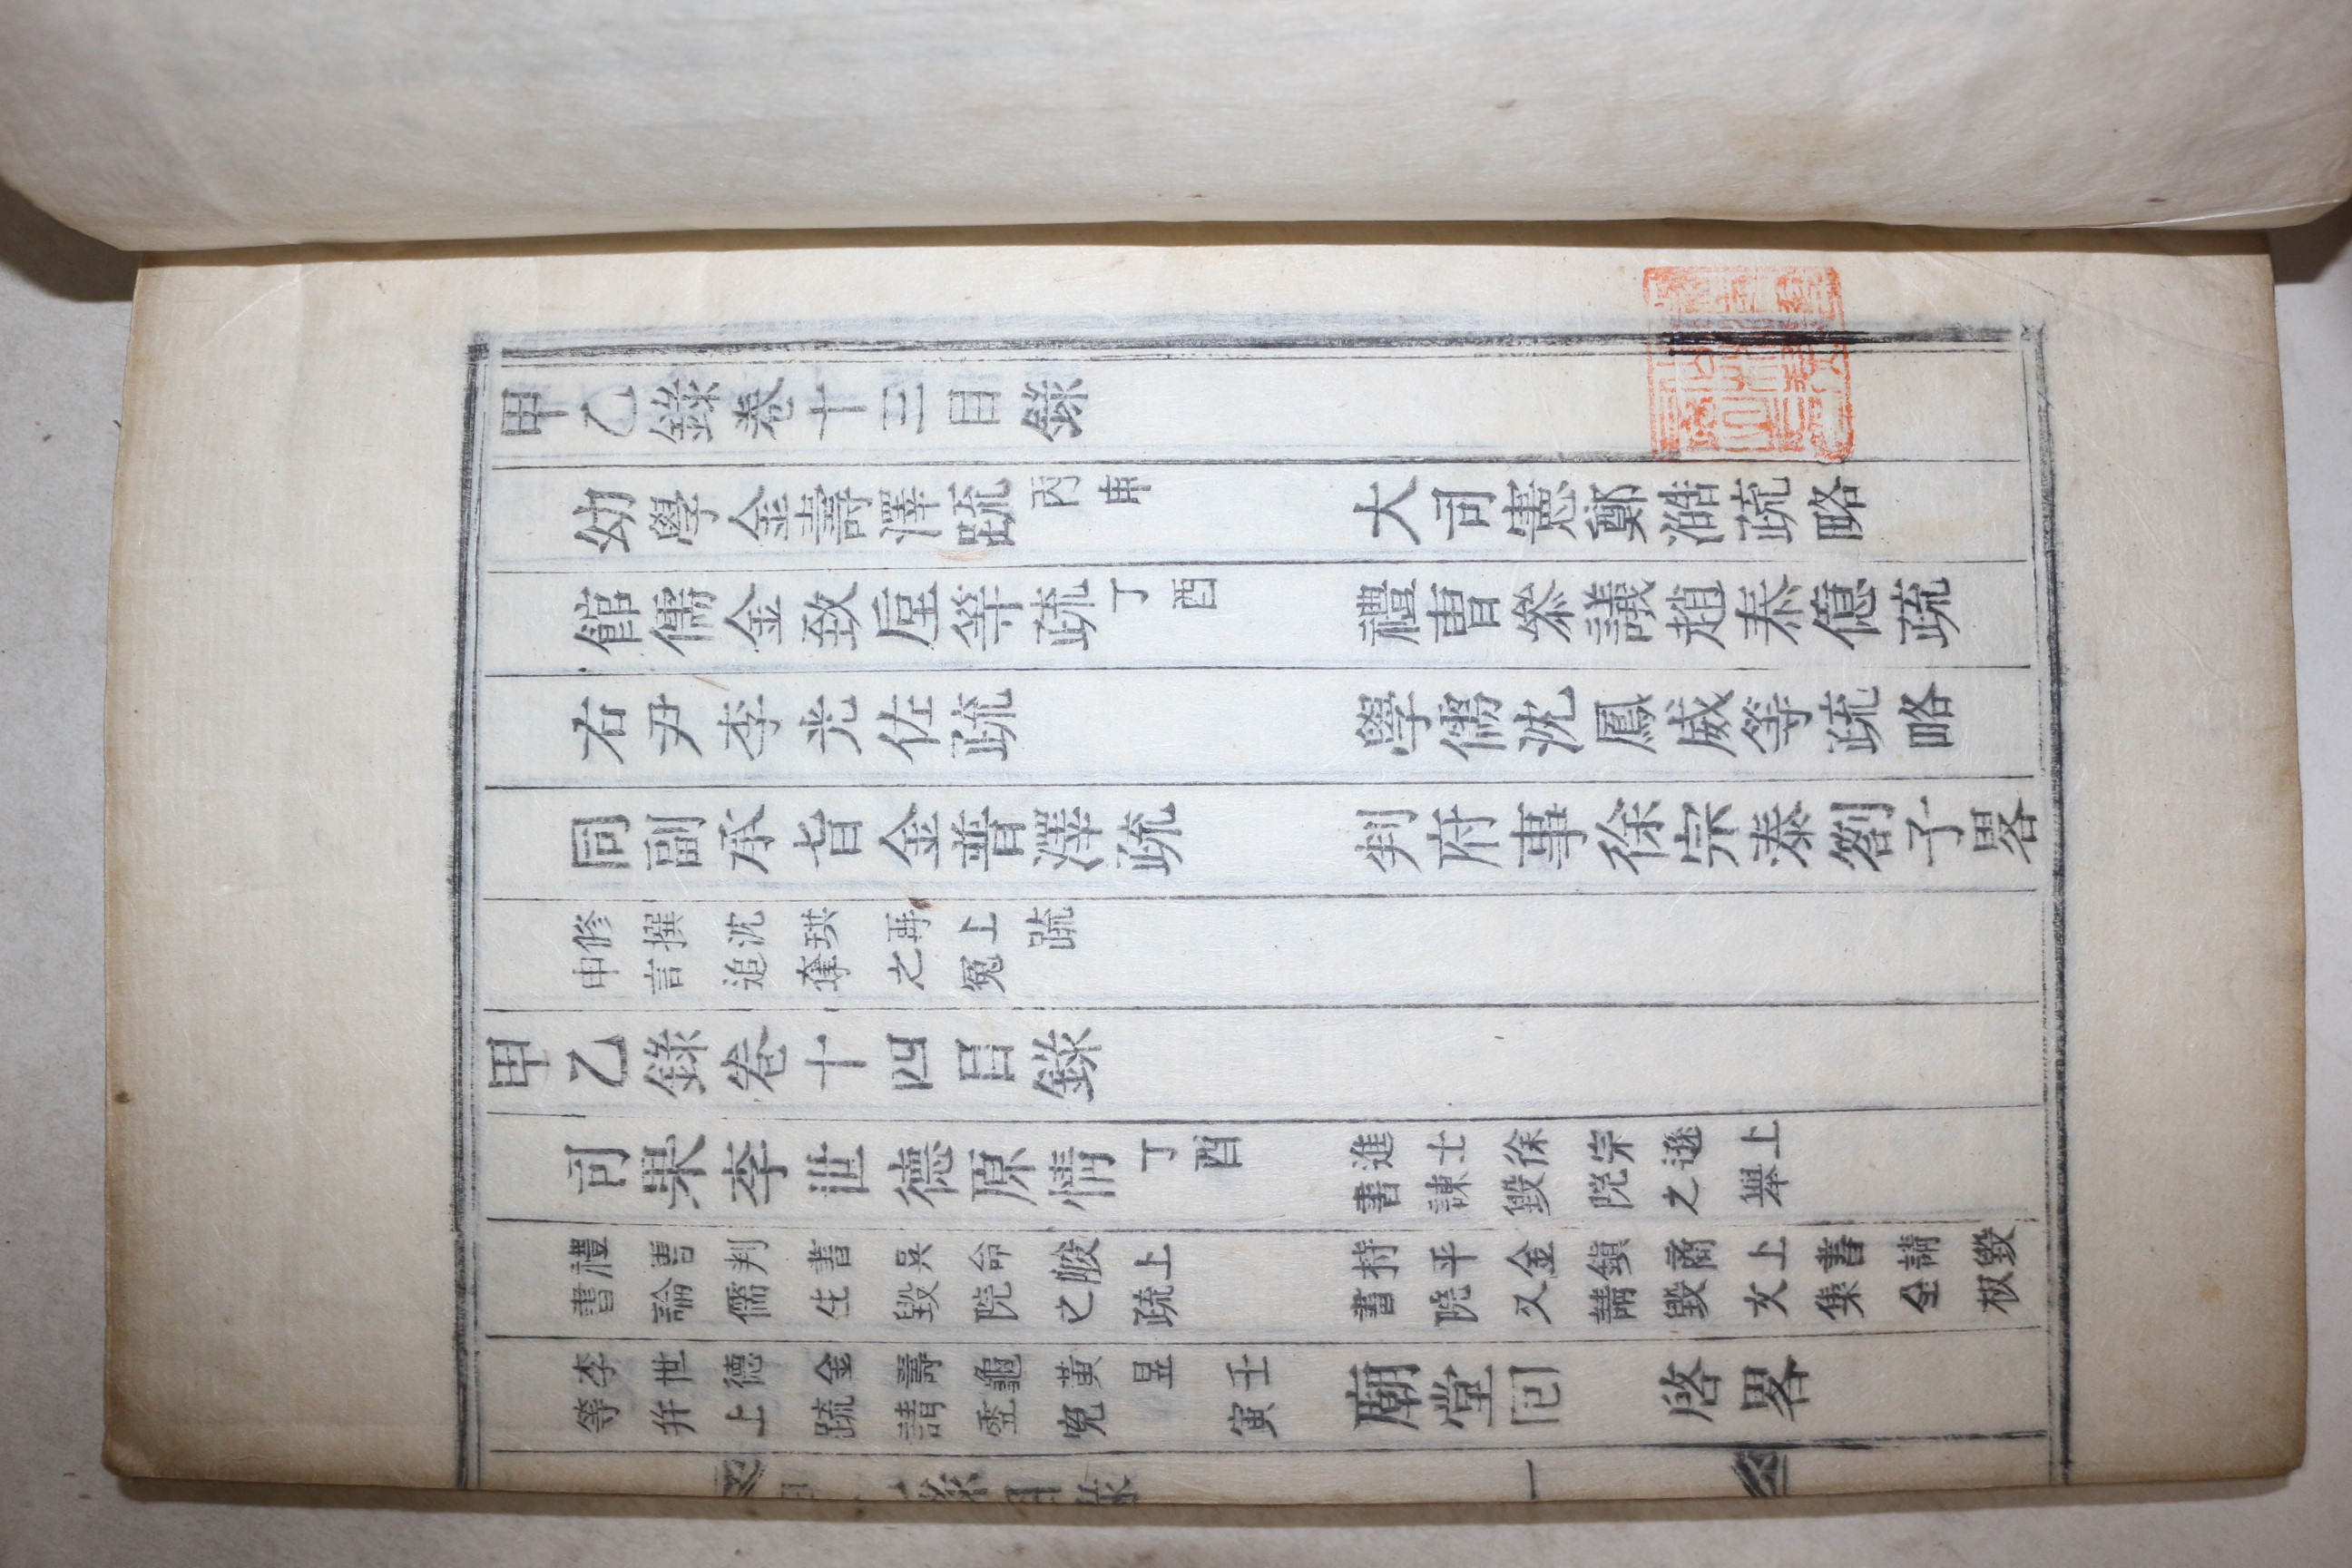 甲乙錄卷十三目錄
幼學金壽澤䟽丙申 大司憲鄭澔疏略
館儒金致垕等疏丁酉 禮曹參議趙泰億疏
右尹李光佐疏 學儒沈鳳威等疏略
同副承旨金普澤疏 判府事徐宗泰劄子畧
修撰沈珙再上䟽
申言追奪之冤
甲乙錄卷十四目錄
司果李世德原情丁酉 進士徐宗遜上
書諫毁院之舉
禮曹判書吳命峻上
書論儒生毁院之疏
持平金鎭商上書請毁
書院又請毁文集全板
李世德金壽龜黃昱
等幷上䟽請雪寃壬寅
廟堂回啓畧
一